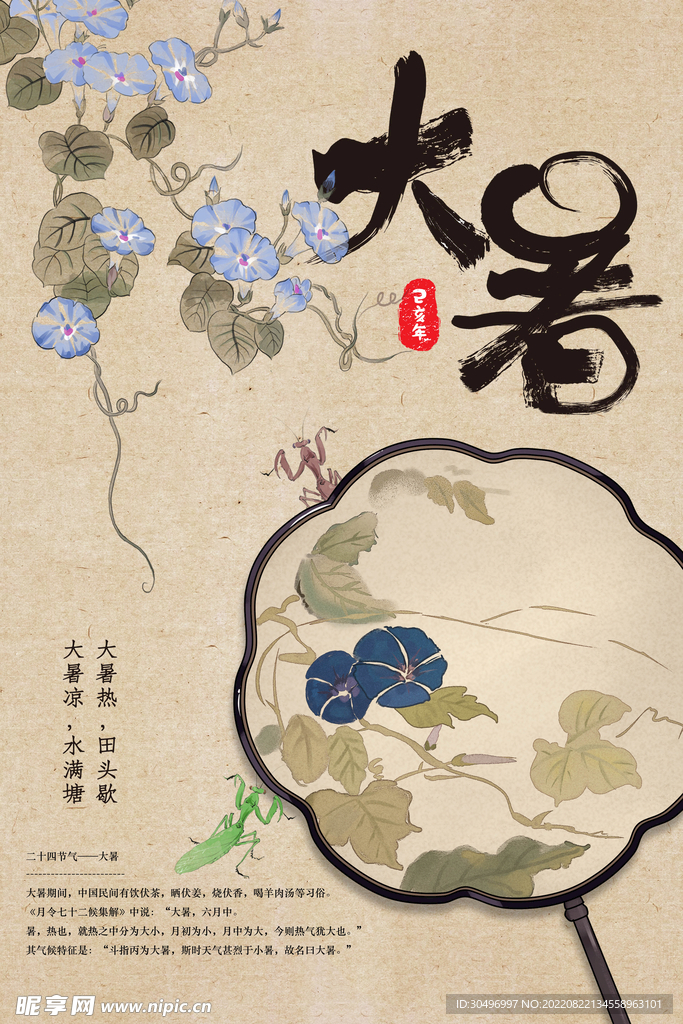 大暑
己亥年
大暑热，田头歇
大暑凉，水满塘
二十四节气——大暑
------------------------
大暑期间，中国民间有饮伏茶，晒伏姜，烧伏香，喝羊肉汤等习俗。
《月令七十二候集解》中说：“大暑，六月中。
暑，热也，就热之中分为大小，月初为小，月中为大，今则热气犹大也。”
其气候特征是：“斗指丙为大暑，斯时天气甚烈于小暑，故名曰大暑。”
昵享网 www.nipic.cn
ID:30496997 NO:20220822134558963101